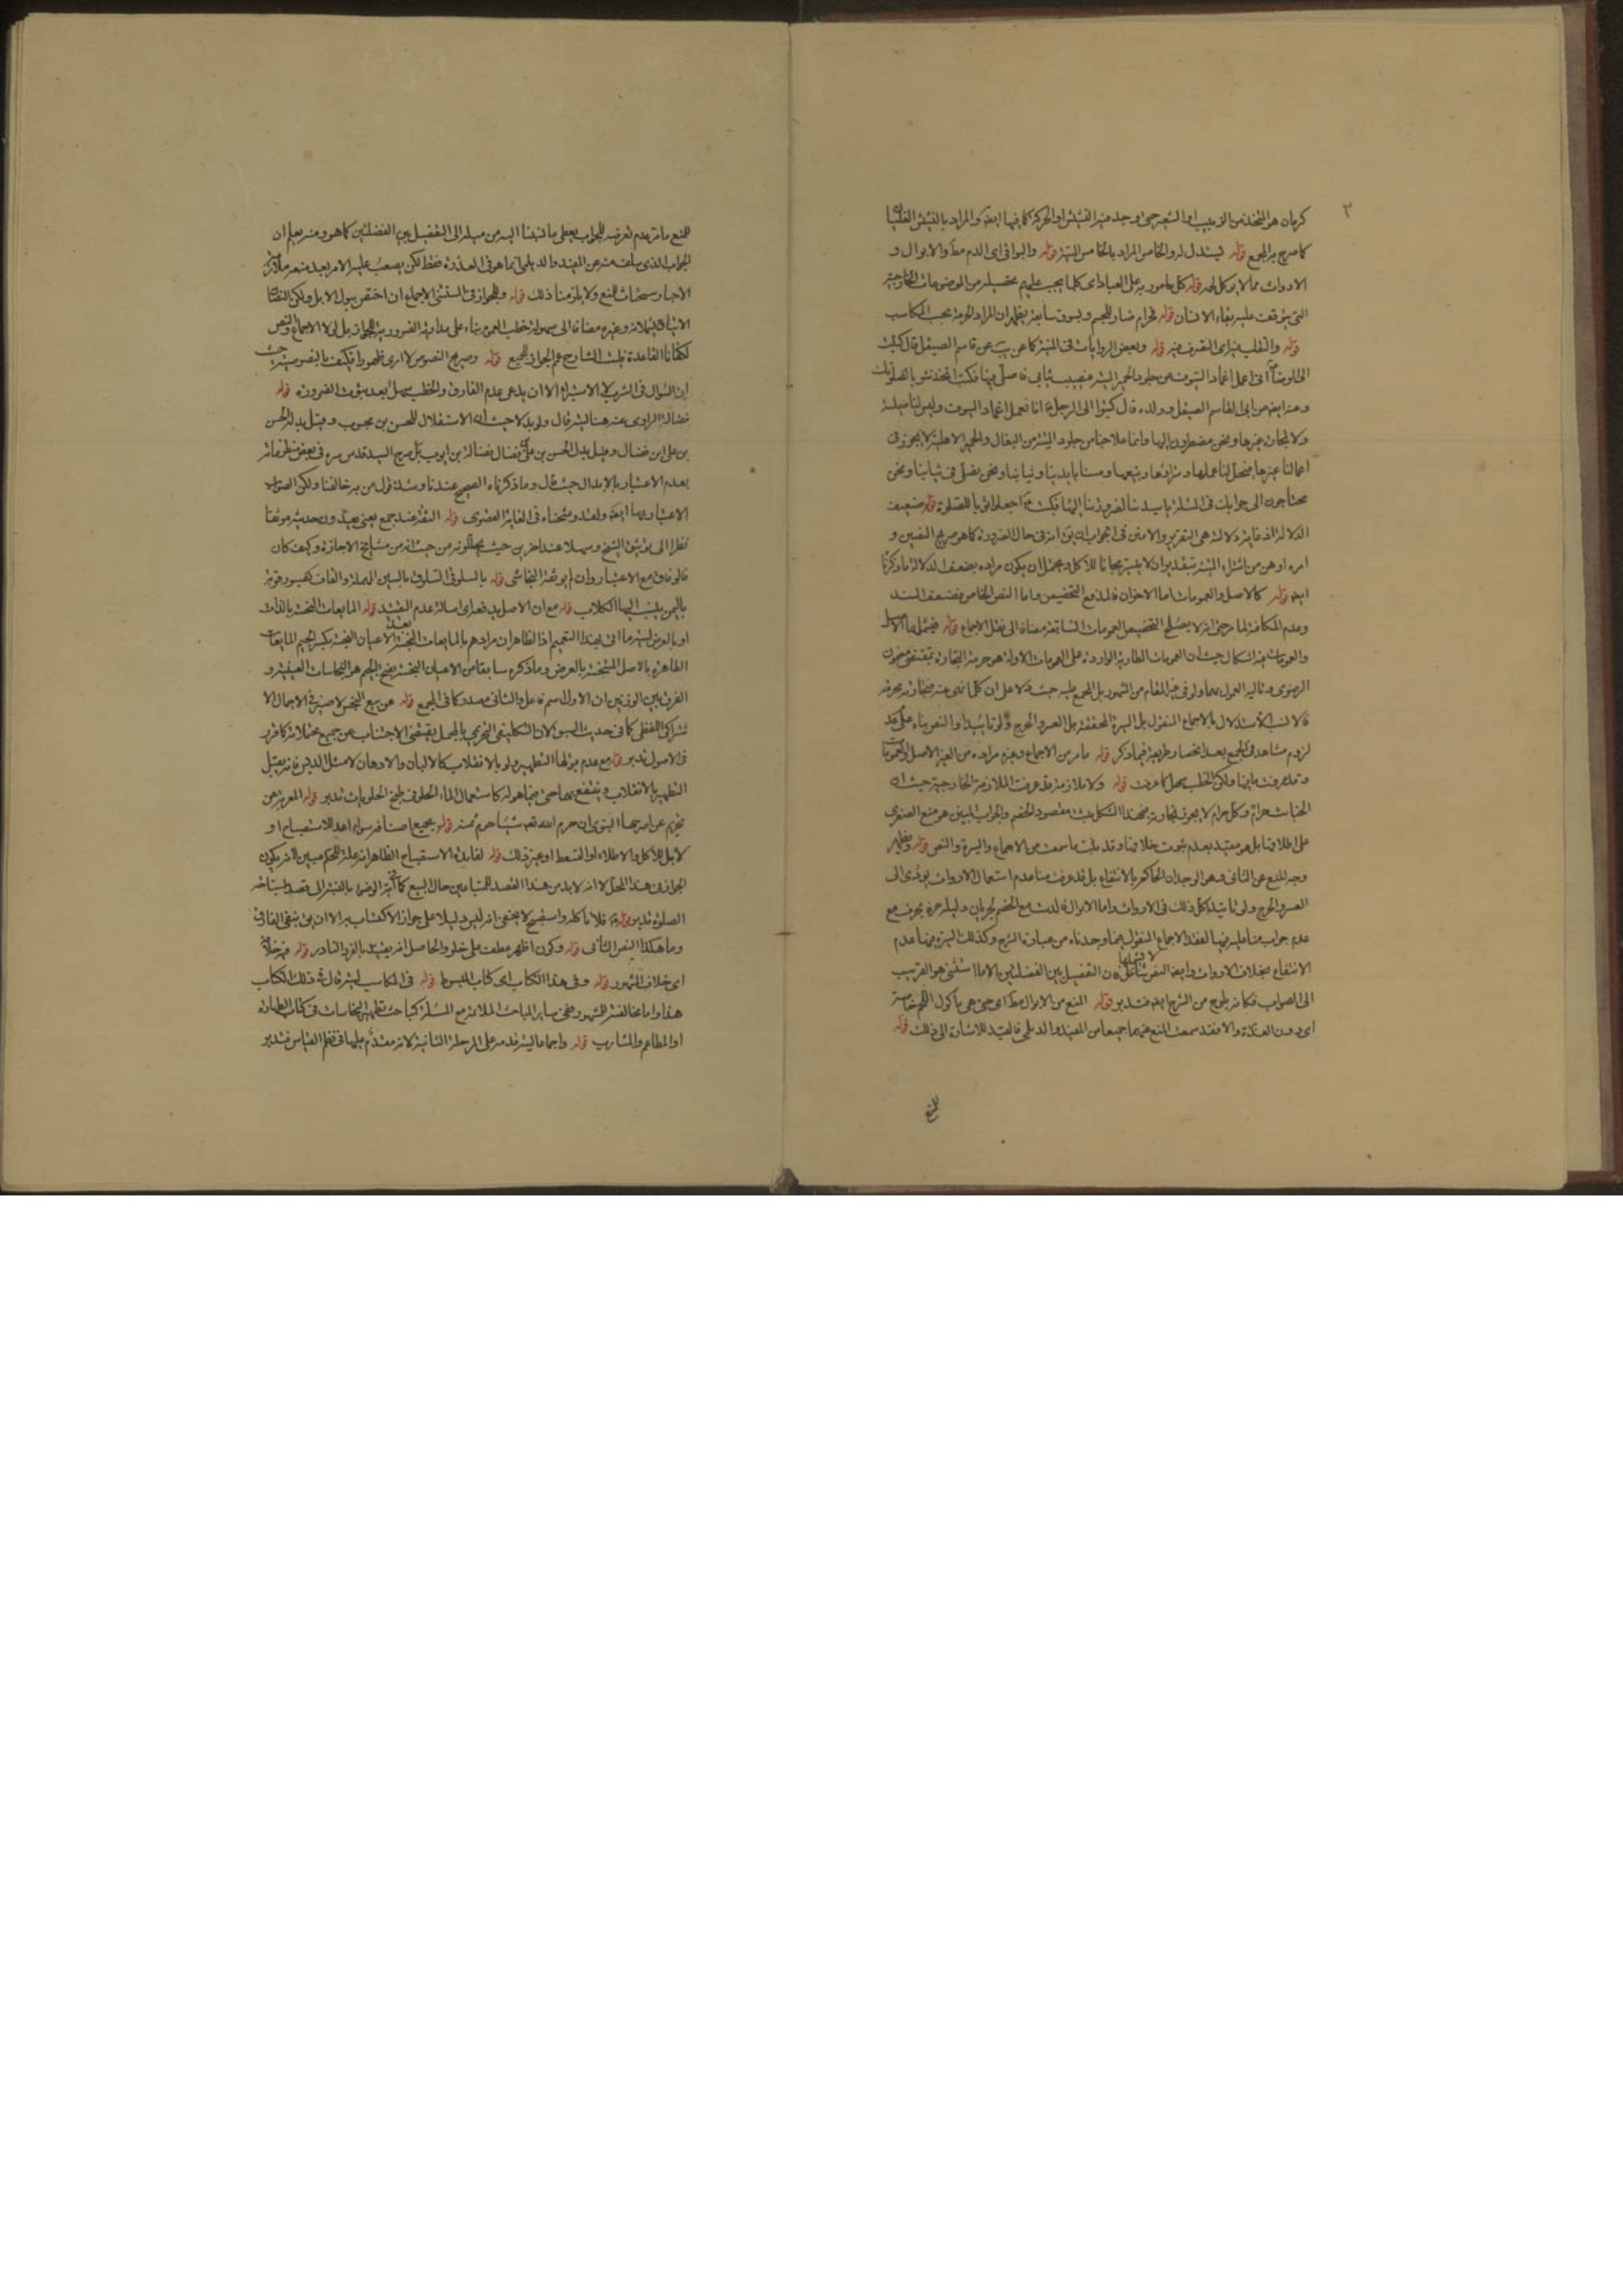 ٣
كرمان هو المتخذ من الزبيب او الشعير حتى وجد فيه النشيش او الحركة كما فيها ايضا والمراد بالنشيش الغليان
كما صرح به المجمع قوله ليستدل له والخامس المراد بالخامس الميتة قوله والبواقى اى الدم مط والابوال و
الارواث مما لا يؤكل لحمه قوله كل مامور به على العباد اى كلما يجب عليهم تحصيله من الموضوعات الخارجية
التى يتوقف عليه بقاء الانسان قوله فحرام ضار للجسم وبسوق سابقه يظهر ان المراد الحرمة بحسب المكاسب
قوله والتقلب فيه اى التصرف فيه قوله وبعض الروايات فى الميتة كما عن يب عن قاسم الصيقل قال كتبت
الى الرضا انى اعمل اغماد السيوف من جلود الحمر الميتة فيصيب ثيابى فاصلى فيها فكتب اتخذ ثوبا لصلوتك
وعنه ايضا عن ابى القاسم الصيقل وولده قال كتبوا الى الرجل انا نعمل اغماد السيوف وليس لنا معيشة
ولا تجارة غيرها ونحن مضطرون اليها وانما علاجنا من جلود الميتة من البغال والحمير الاهلية لا يجوز فى
اعمالنا غيرها فيحل لنا عملها وشراؤها وبيعها ومسها بايدينا وثيابنا ونحن نصلى فى ثيابنا ونحن
محتاجون الى جوابك فى المسئلة يا سيدنا لضرورتنا اليها فكتب اجعلوا ثوبا للصلوة قوله ضعيف
الدلالة اذ غاية دلالة هى التقرير والامر فى الجواب ان يق انه فى حال الضرورة كما هو صريح النصين و
امره اوهن من اشتراء الميتة بتقدير ان لا يتيسر مجانا للاكل ويحتمل ان يكون مراده بضعف الدلالة ما ذكرنا
ايضا قوله كالاصل والعمومات اما الاخران فلمنع التخصيص واما النص الخاص فضعف السند
وعدم المكافئة لما مر حتى انه لا يصلح التخصيص العمومات السابقة مضافا الى نقل الاجماع قوله فيشملها الاول
والعمومات فيه اشكال حيث ان العمومات الطارية الواردة على العمومات الاولة هو حرمة التجارة بمقتضى مضمون
الرضوى وتاليه المعول بهما ولو فى غير المقام من المشهور بل المجمع عليه حيث دلا على ان كلما نهى عنه فتجارته محرمة
فالانسب الاستدلال بالاجماع المنقول بل السيرة المحققة بل العسر والحرج ولو تاييدا والنصوص بناء على
لزوم مشاهد فى المجمع بعد انحصار طريقه فيما ذكر قوله ما مر من الاجماع وغيره مراده من الغير الاصل والعمومات
وقد عرفت ما فيها ولكن الخطب سهل كما عرفت قوله ولا ملازمة قد عرفت الملازمة الخارجية حيث ان
الخبائث حرام وكل حرام لا يجوز تجارته فبهذا الشكل يثبت مقصود الخصم والجواب المبين هو منع الصغرى
على اطلاقها بل هو مقيد بعدم ثبوت خلافها وقد ثبت ما سمعت من الاجماع والسيرة والنص قوله ويظهر
وجه المنع عن الثانى وهو الوجدان الحاكم بالانتفاع بل قد عرفت منا عدم استعمال الارواث يؤدى الى
العسر والحرج ولو تاييدا كل ذلك فى الارواث واما الابوال فالحق مع الخصم لجريان دليله حرفا بحرف مع
عدم جواب منا عليه فيها لفقد الاجماع المنقول فيها وجدناه من عبارة الشرح وكذلك السيرة فيها عدم
الانتفاع بخلاف الارواث وايضا النص لا يشملها فان التفصيل بين الفضلتين الا ما استثنى هو القريب
الى الصواب فكانه يلوح من الشرح ايضا فتدبر قوله المنع من الابوال مط اى حتى هى ماكول اللحم خاصة
اى دون العذرة والا فقد سمعت المنع عنهما جميعا من المفيد والديلمى فالقيد للاشارة الى ذلك قوله
للمنع
للمنع ما مر عدم تعرضه للجواب يعطى ما نبهنا اليه من ميله الى التفصيل بين الفضلتين كما هو ومنه يعلم ان
الجواب الذى سلف منه عن المفيد والديلمى انما هو فى العذرة فقط لكن يصعب عليه الامر بعد منعه
الاجبار سحنات المنع ولا يلزمنا ذلك قوله وللجواز فى المستثنى الاجماع ان اختص ببول الابل ولكن النصان
الاتيان وغيره مضافا الى سهولة خطب العموم بناء على مداويه الضرورية للجواز بل لولا الاجماع والنص
لكفانا القاعدة فثبت الشارح عمم الجواز للجميع قوله وصريح النصوص لا ارى ظهورا فكيف بالنصوصية حيث
ان السؤال فى الشرب لا الاشتراء الا ان يدعى عدم الفارق والخطب سهل بعد ثبوت الضرورة قوله
فضالة الراوى عنه هنا ليثرقال ولو بدلا حيث ان الاستقلال للحسن بن محبوب وقيل بدله الحسن
بن على بن فضال وقيل بدل الحسن بن على فضال فضالة بن ايوب بل صرح السيد قدس سره فى بعض منظوماته
بعدم الاعتبار بالابدال حيث قال وما ذكرناه الصحيح عندنا وشذ قول من به خالفنا ولكن الصواب
الاعتبار بها ايضا ولقد وشحناه فى الغاية القصوى قوله الثقة عند جمع يعنى يعدون حديثه موثقا
نظرا الى توثيق الشيخ وسهلا عند اخرين حيث يجعلونه من حيث انه من مشايخ الاجازة وكيف كان
فالوفاق مع الاعتبار وان لم يوثقه النجاشى قوله بالسلوقى السلوق بالسين المهملة والقاف كصبور قرية
باليمن ينسب اليها الكلاب قوله مع ان الاصل يدفعه اى اصالة عدم التقييد قوله المايعات النجسة بالذات
او بالعرض ليثر ما انى بهذا التعميم اذ الظاهر ان مرادهم بالمايعات النجسة بعد الاعيان النجسة بكسر الجيم المايعات
الطاهرة بالاصل المتنجسة بالعرض وما ذكره سابقا من الاعيان النجسة بفتح الجيم هو النجاسات العينية و
الفرق بين الوزنين ان الاول اسم فاعل والثانى مصدر كما فى المجمع قوله عن بيع النجس لا ضير فى الاجمال الا
شتراكى اللفظى كما فى حديث البول لان التكليف التحريمى بالمجمل يقتضى الاجتناب عن جميع محتملاته كما قرر
فى الاصول تدبر قوله مع عدم قبولها التطهير ولو بالانقلاب كالالبان والادهان لا مثل الدبس فانه يقبل
التطهير بالانقلاب وينتفع بها حتى فيما هو له كاستعمال الماء الحلو فى طبخ الحلويات تدبر قوله المعربة عن
تحريم عن اصرحها النبوى ان حرم الله تعه شيئا حرم ثمنه قوله بجميع اصنافه سواء اعد للاستصباح او
لا بل للاكل والاطلاء او السقط او غير ذلك قوله لفايدة الاستصباح الظاهر انه علة للحكم مبين لانه يكون
الجواز فى هذا المحل لا انه لابد من هذا القصد للمتبايعين حال البيع كما فى نية الوضوء بالنسبة الى قصد استباحة
الصلوة تدبر قوله فلا تاكله واستصبح لا يخفى انه ليس دليلا على جواز الاكتساب به الا ان يق بنفى الفارق
وما هكذا النص الثانى قوله وكون اظهر عطف على خلو والحاصل انه يقيد بالفرد النادر قوله فى خلافه
اى خلاف المشهور قوله وفى هذا الكتاب اى كتاب المبسوط قوله فى المكاسب ليثر قال فى ذلك الكتاب
هذا واما مخالفته للمشهور ففى ساير المباحث الملائمة مع المسئلة كمباحث تطهير النجاسات فى كتاب الطهارة
او المطاعم والمشارب قوله واجماعا ليثر قدمه على المرحلة الثانية لانه مقدم عليها فى نظم القياس فتدبر